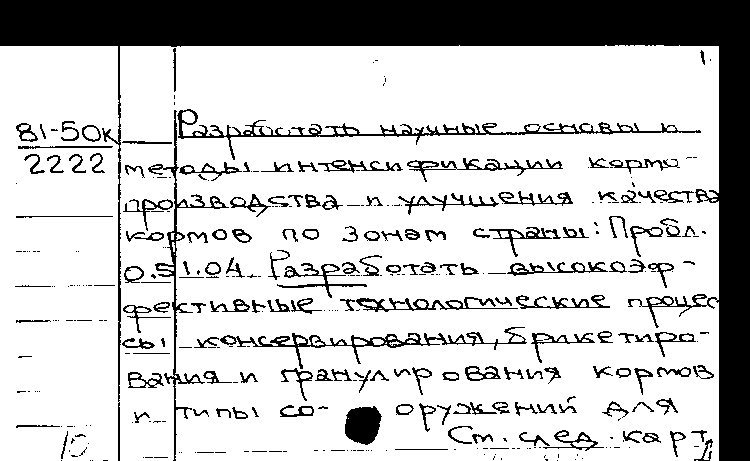 1.
81-50к
2222
Разработать научные основы и
методы интенсификации кормо-
производства и улучшения качества
кормов по зонам страны: Пробл.
0.51.04. Разработать высокоэф-
фективные технологические процес
сы консервирования, брикетиро-
вания и гранулирования кормов
и типы со- оружений для
См. след. карт.
10